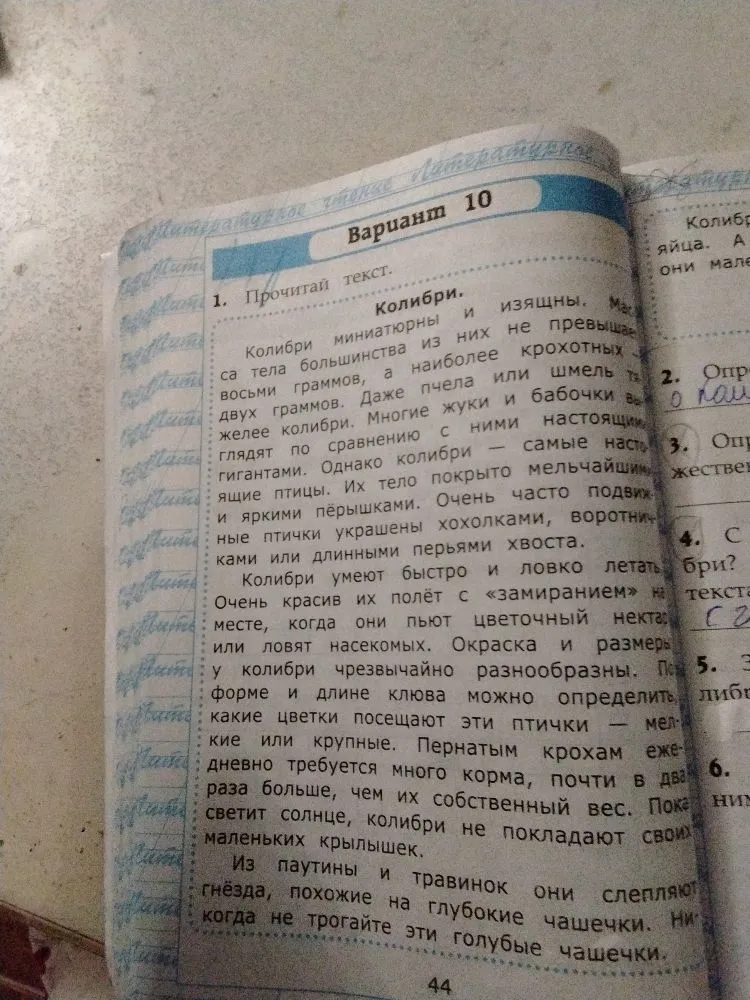 Литературное чтение Литературное
Вариант 10
1. Прочитай текст.
Колибри.
Колибри миниатюрны и изящны. Мас
са тела большинства из них не превышае
восьми граммов, а наиболее крохотных —
двух граммов. Даже пчела или шмель тя
желее колибри. Многие жуки и бабочки вы
глядят по сравнению с ними настоящим
гигантами. Однако колибри — самые насто
ящие птицы. Их тело покрыто мельчайшим
и яркими пёрышками. Очень часто подвиж-
ные птички украшены хохолками, воротнич-
ками или длинными перьями хвоста.
Колибри умеют быстро и ловко летать.
Очень красив их полёт с «замиранием» на
месте, когда они пьют цветочный нектар
или ловят насекомых. Окраска и размеры
у колибри чрезвычайно разнообразны. По
форме и длине клюва можно определить,
какие цветки посещают эти птички — мел-
кие или крупные. Пернатым крохам еже-
дневно требуется много корма, почти в два
раза больше, чем их собственный вес. Пока
светит солнце, колибри не покладают своих
маленьких крылышек.
Из паутины и травинок они слепляют
гнёзда, похожие на глубокие чашечки. Ни-
когда не трогайте эти голубые чашечки.
44
Колибр
яйца. А
они мале
2. Опр
о
3. Опр
жествен
4. С
бри?
текста
с г
5. З
либр
6.
ним